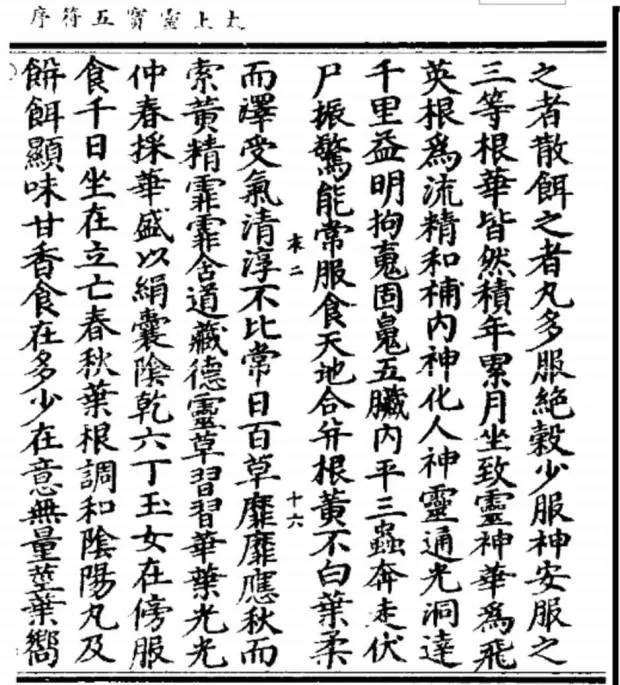 太上靈寶五符序
之者散餌之者丸多服絶穀少服神安服之
三等根華皆然積年累月坐致靈神華爲飛
英根爲流精和補内神化人神靈通光洞達
千里益明拘魂固魄五臟内平三蟲奔走伏
尸振驚能常服食天地合并根黃不白葉柔
衣二 十六
而澤受氣清淳不比常日百草靡靡應秋而
索黃精霏霏含道藏德靈草習習華葉光光
仲春採華盛以絹囊陰乾六丁玉女在傍服
食千日坐在立亡春秋葉根調和陰陽丸及
餅餌顯味甘香食在多少在意無量莖葉嚮